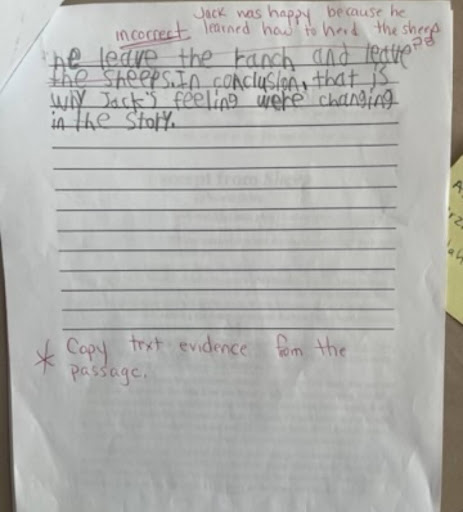 Jack was happy because he
incorrect learned how to herd the sheep
he leave the ranch and leave
the sheeps. In conclusion, that is
why Jack's feeling were changing
in the story.
* Copy text evidence fom the
passage.